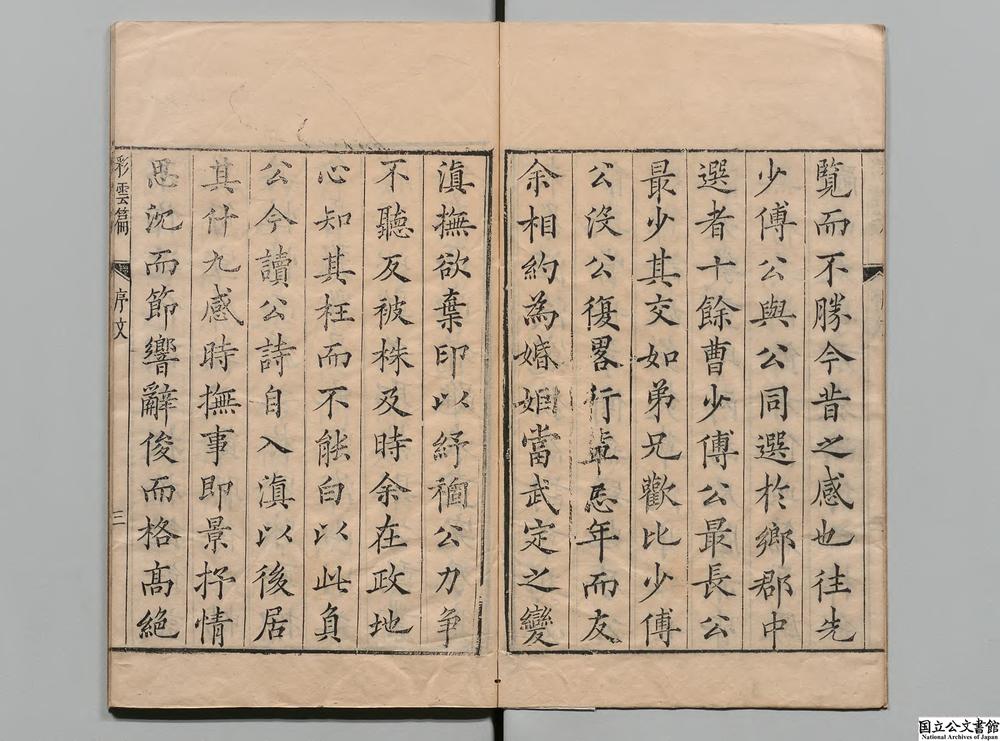 覽而不勝今昔之感也往先
少傅公與公同選於鄉郡中
選者十餘曹少傅公最長公
最少其交如弟兄歡比少傅
公沒公復畧行輩忘年而友
余相約為婚姻當武定之變
滇撫欲棄印以紓禍公力爭
不聽反被株及時余在政地
心知其枉而不能白以此負
公今讀公詩自入滇以後居
其什九感時撫事即景抒情
思沉而節響辭俊而格高絕
彩雲篇
序文
三
国立公文書館
National Archives of Japan